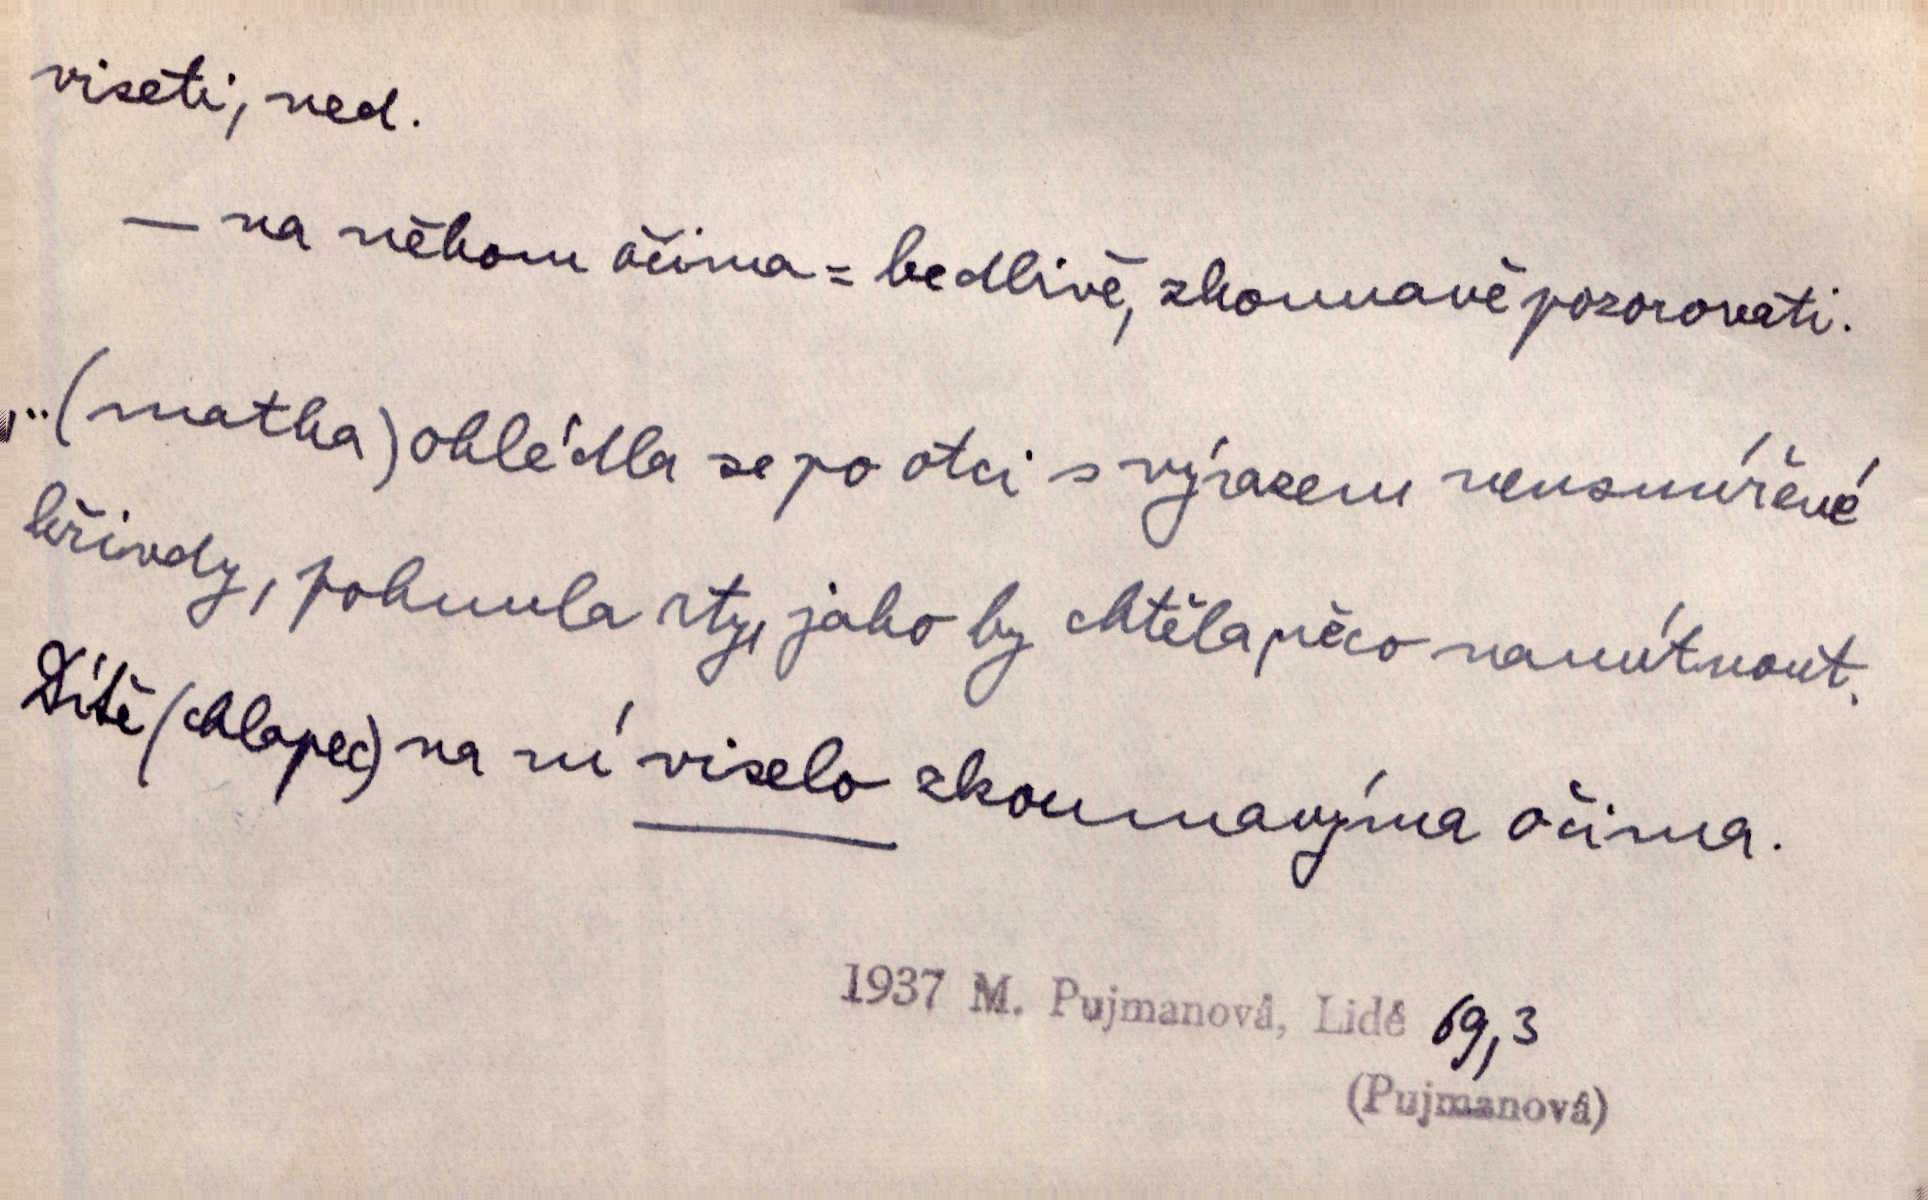 viseti, ned.
— na někom očima = bedlivě, zkoumavě pozorovati.
..(matka) ohlédla se po otci s výrazem neusmířené
křivdy, pohnula rty, jako by chtěla něco namítnout.
Dítě (chlapec) na ní viselo zkoumavýma očima.
1937 M. Pujmanová, Lidé 69,3
(Pujmanová)